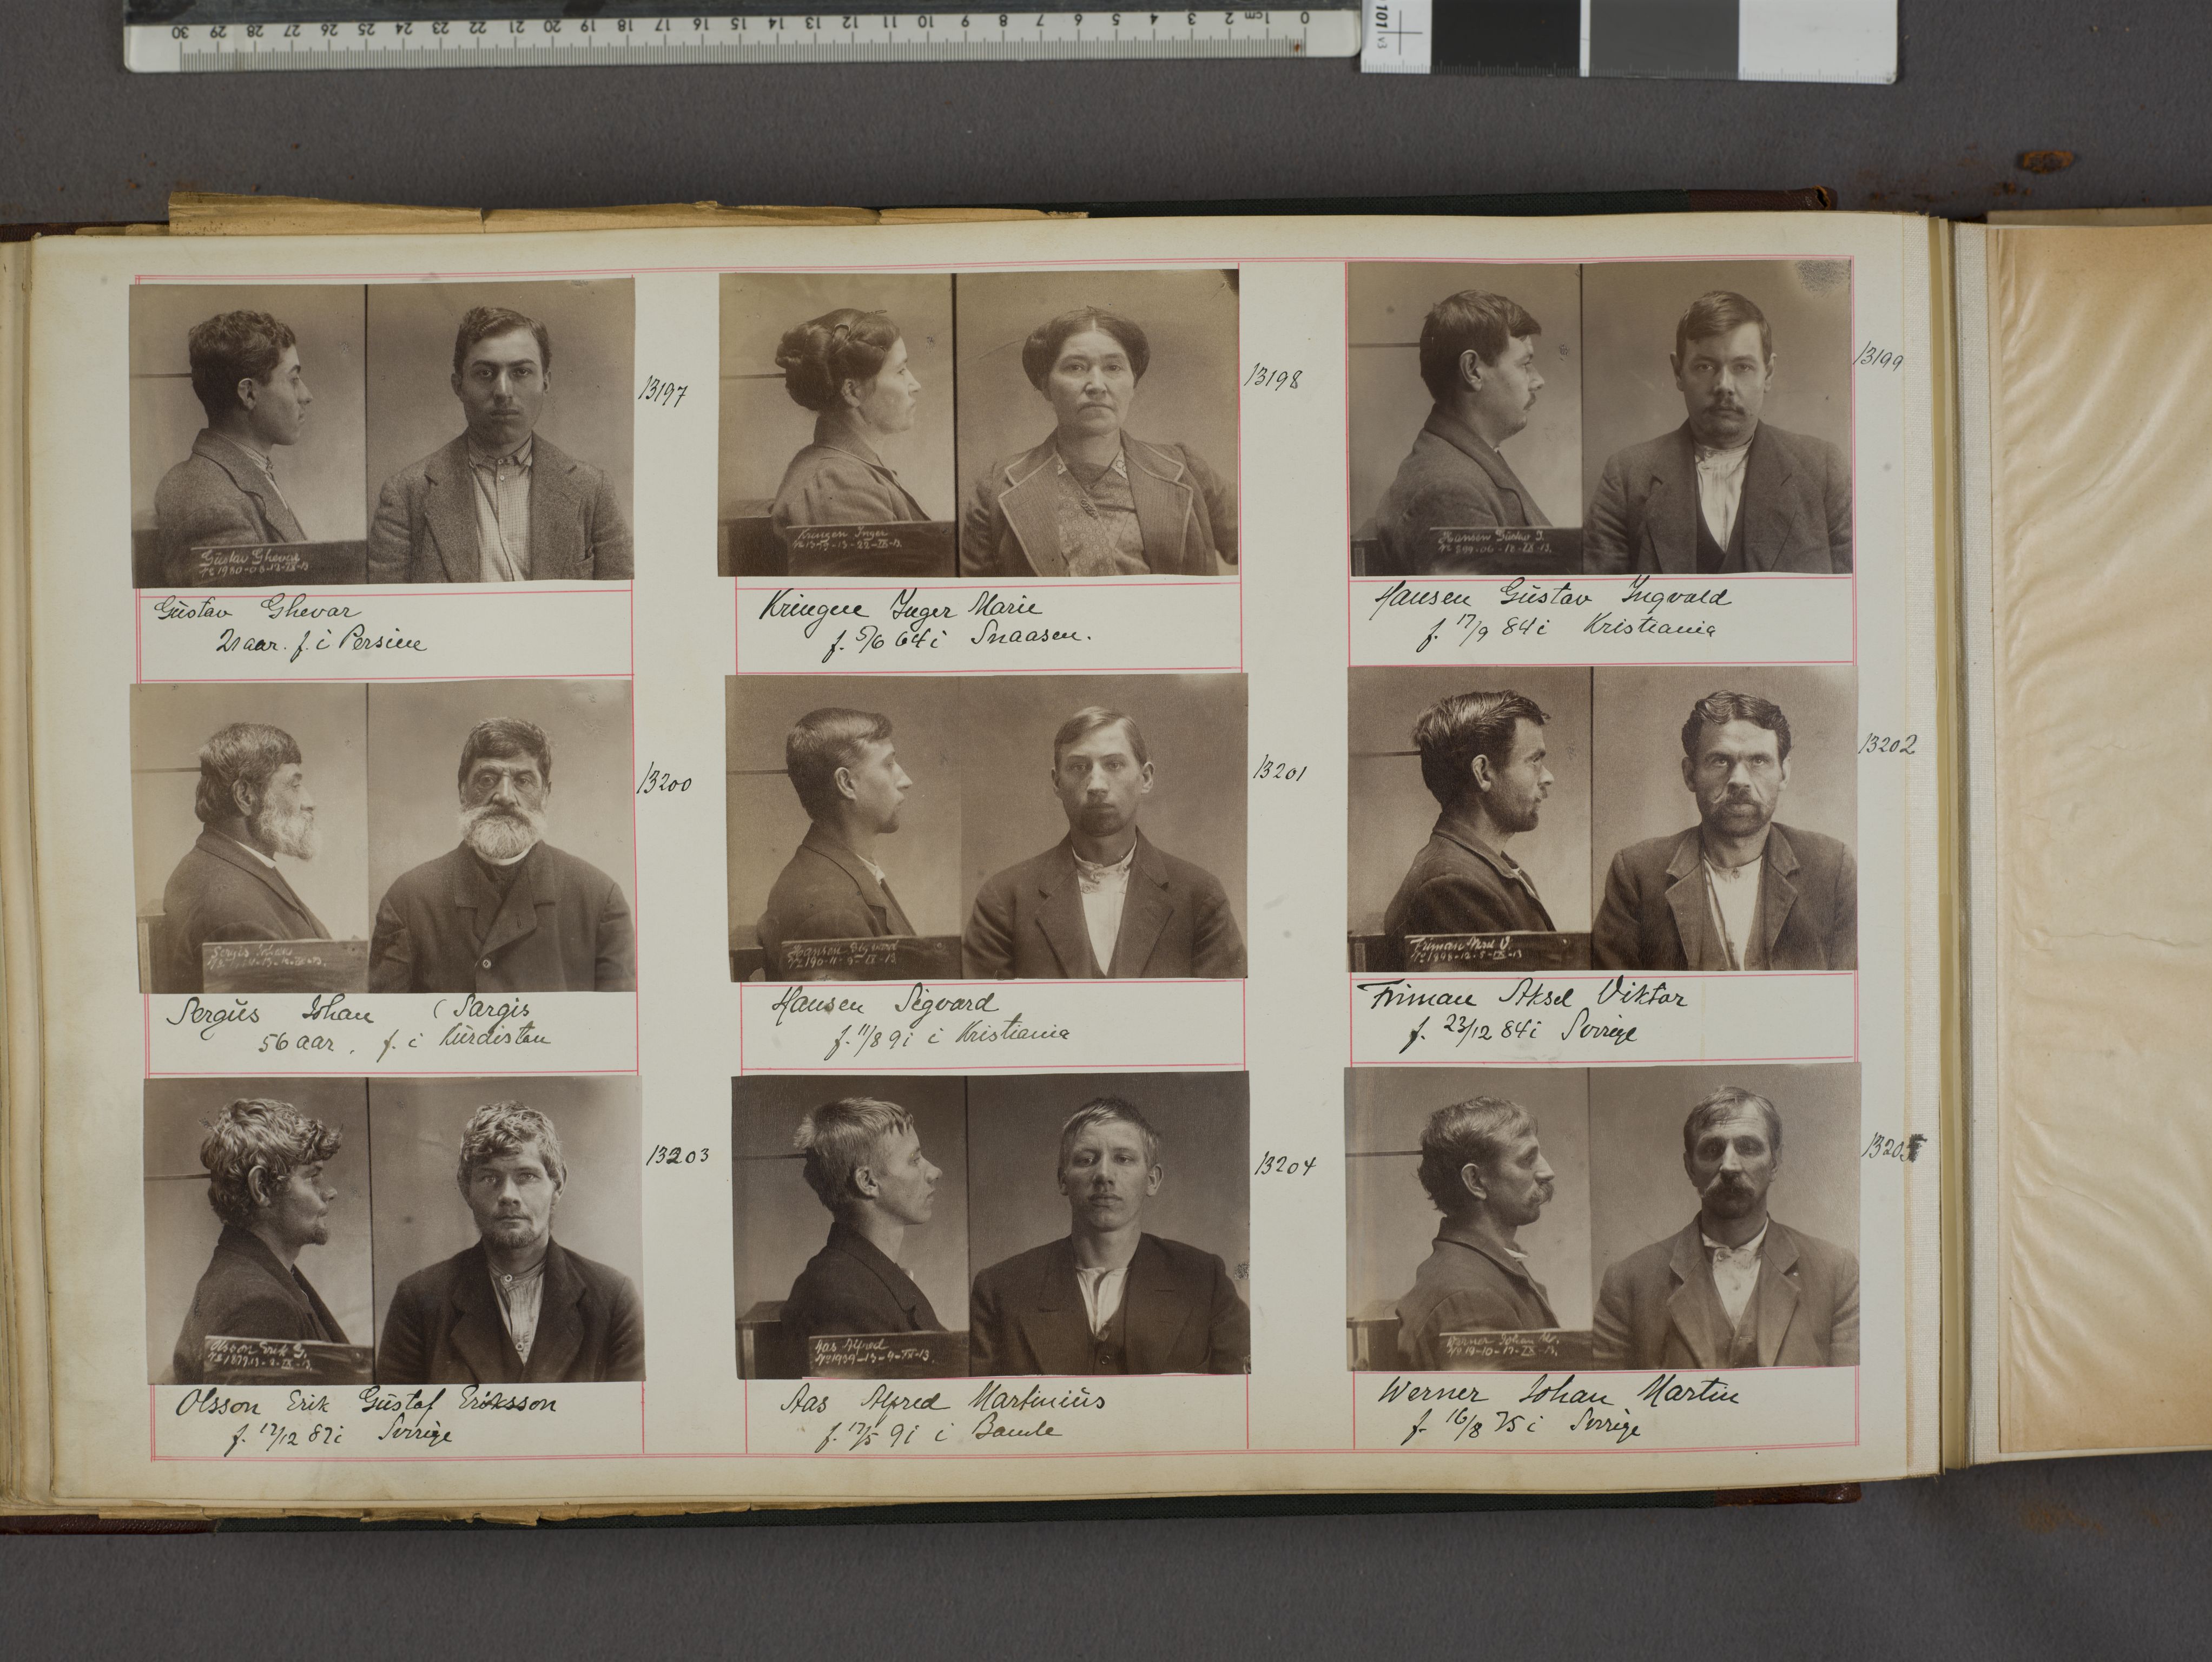 0 1cm 2 3 4 5 6 7 8 9 10 11 12 13 14 15 16 17 18 19 20 21 22 23 24 25 26 27 28 29 30
101 v3
13197
Gustav Ghevar
Nº 1980-08-13-IX-13
Gŭstav Ghevar
21 aar. f. i Persien
13198
Kringen Inger
-13-22-IX-13.
Kringen Inger Marie
f. 5/6 64 i Snaasen.
13199
Hansen Gustav I.
Nº 299-06-18-IX-13.
Hansen Gŭstav Ingvald
f. 17/9 84 i Kristiania
13200
Sergis Johan
Sergŭs Johan (Sargis
56 aar, f. i Kŭrdistan
13201
Hansen Sigvard
Nº 190-11-9-IX-13
Hansen Sigvard
f. 11/8 91 i Kristiania
13202
Friman Aksel V.
Nº 1898-12-5-IX-13
Friman Aksel Viktor
f. 23/12 84 i Sverige
13203
Olsson Erik G.
Nº 1877-13-2-IX-13.
Olsson Erik Gŭstaf Eriksson
f. 17/12 87 i Sverige
13204
Aas Alfred
Nº 1939-13-9-IX-13.
Aas Alfred Martiniŭs
f. 17/5 91 i Bamle
13205
Werner Johan M.
Nº 19-10-17-IX-13.
Werner Johan Martin
f. 16/8 75 i Sverige